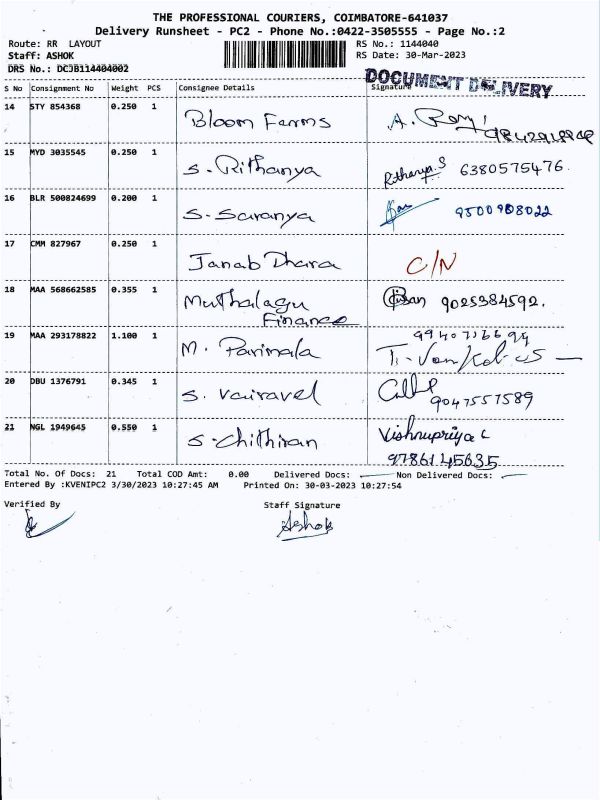 THE PROFESSIONAL COURIERS, COIMBATORE-641037
Delivery Runsheet - PC2 - Phone No.:0422-3505555 - Page No.:2
Route: RR LAYOUT RS No.: 1144040
Staff: ASHOK RS Date: 30-Mar-2023
DRS No.: DC3B114404002
DOCUMENT DELIVERY
S No Consignment No Weight PCS Consignee Details Signature
14 STY 854368 0.250 1 Bloom Farms A.
15 MYD 3035545 0.250 1 S. Rithanya Rithanya.S 6380575476.
16 BLR 500824699 0.200 1 S-Saranya 9500908022
17 CMM 827967 0.250 1 Janab Dhara C/N
18 MAA 568662585 0.355 1 Muthalagu 9025384592.
Finance
19 MAA 293178822 1.100 1 M. Parimala
20 DBU 1376791 0.345 1 S. Vairavel 9047557589
21 NGL 1949645 0.550 1 S-Chithiran Vishnupriya C
9786145635
Total No. Of Docs: 21 Total COD Amt: 0.00 Delivered Docs: Non Delivered Docs:
Entered By :KVENIPC2 3/30/2023 10:27:45 AM Printed On: 30-03-2023 10:27:54
Verified By Staff Signature
Ashok